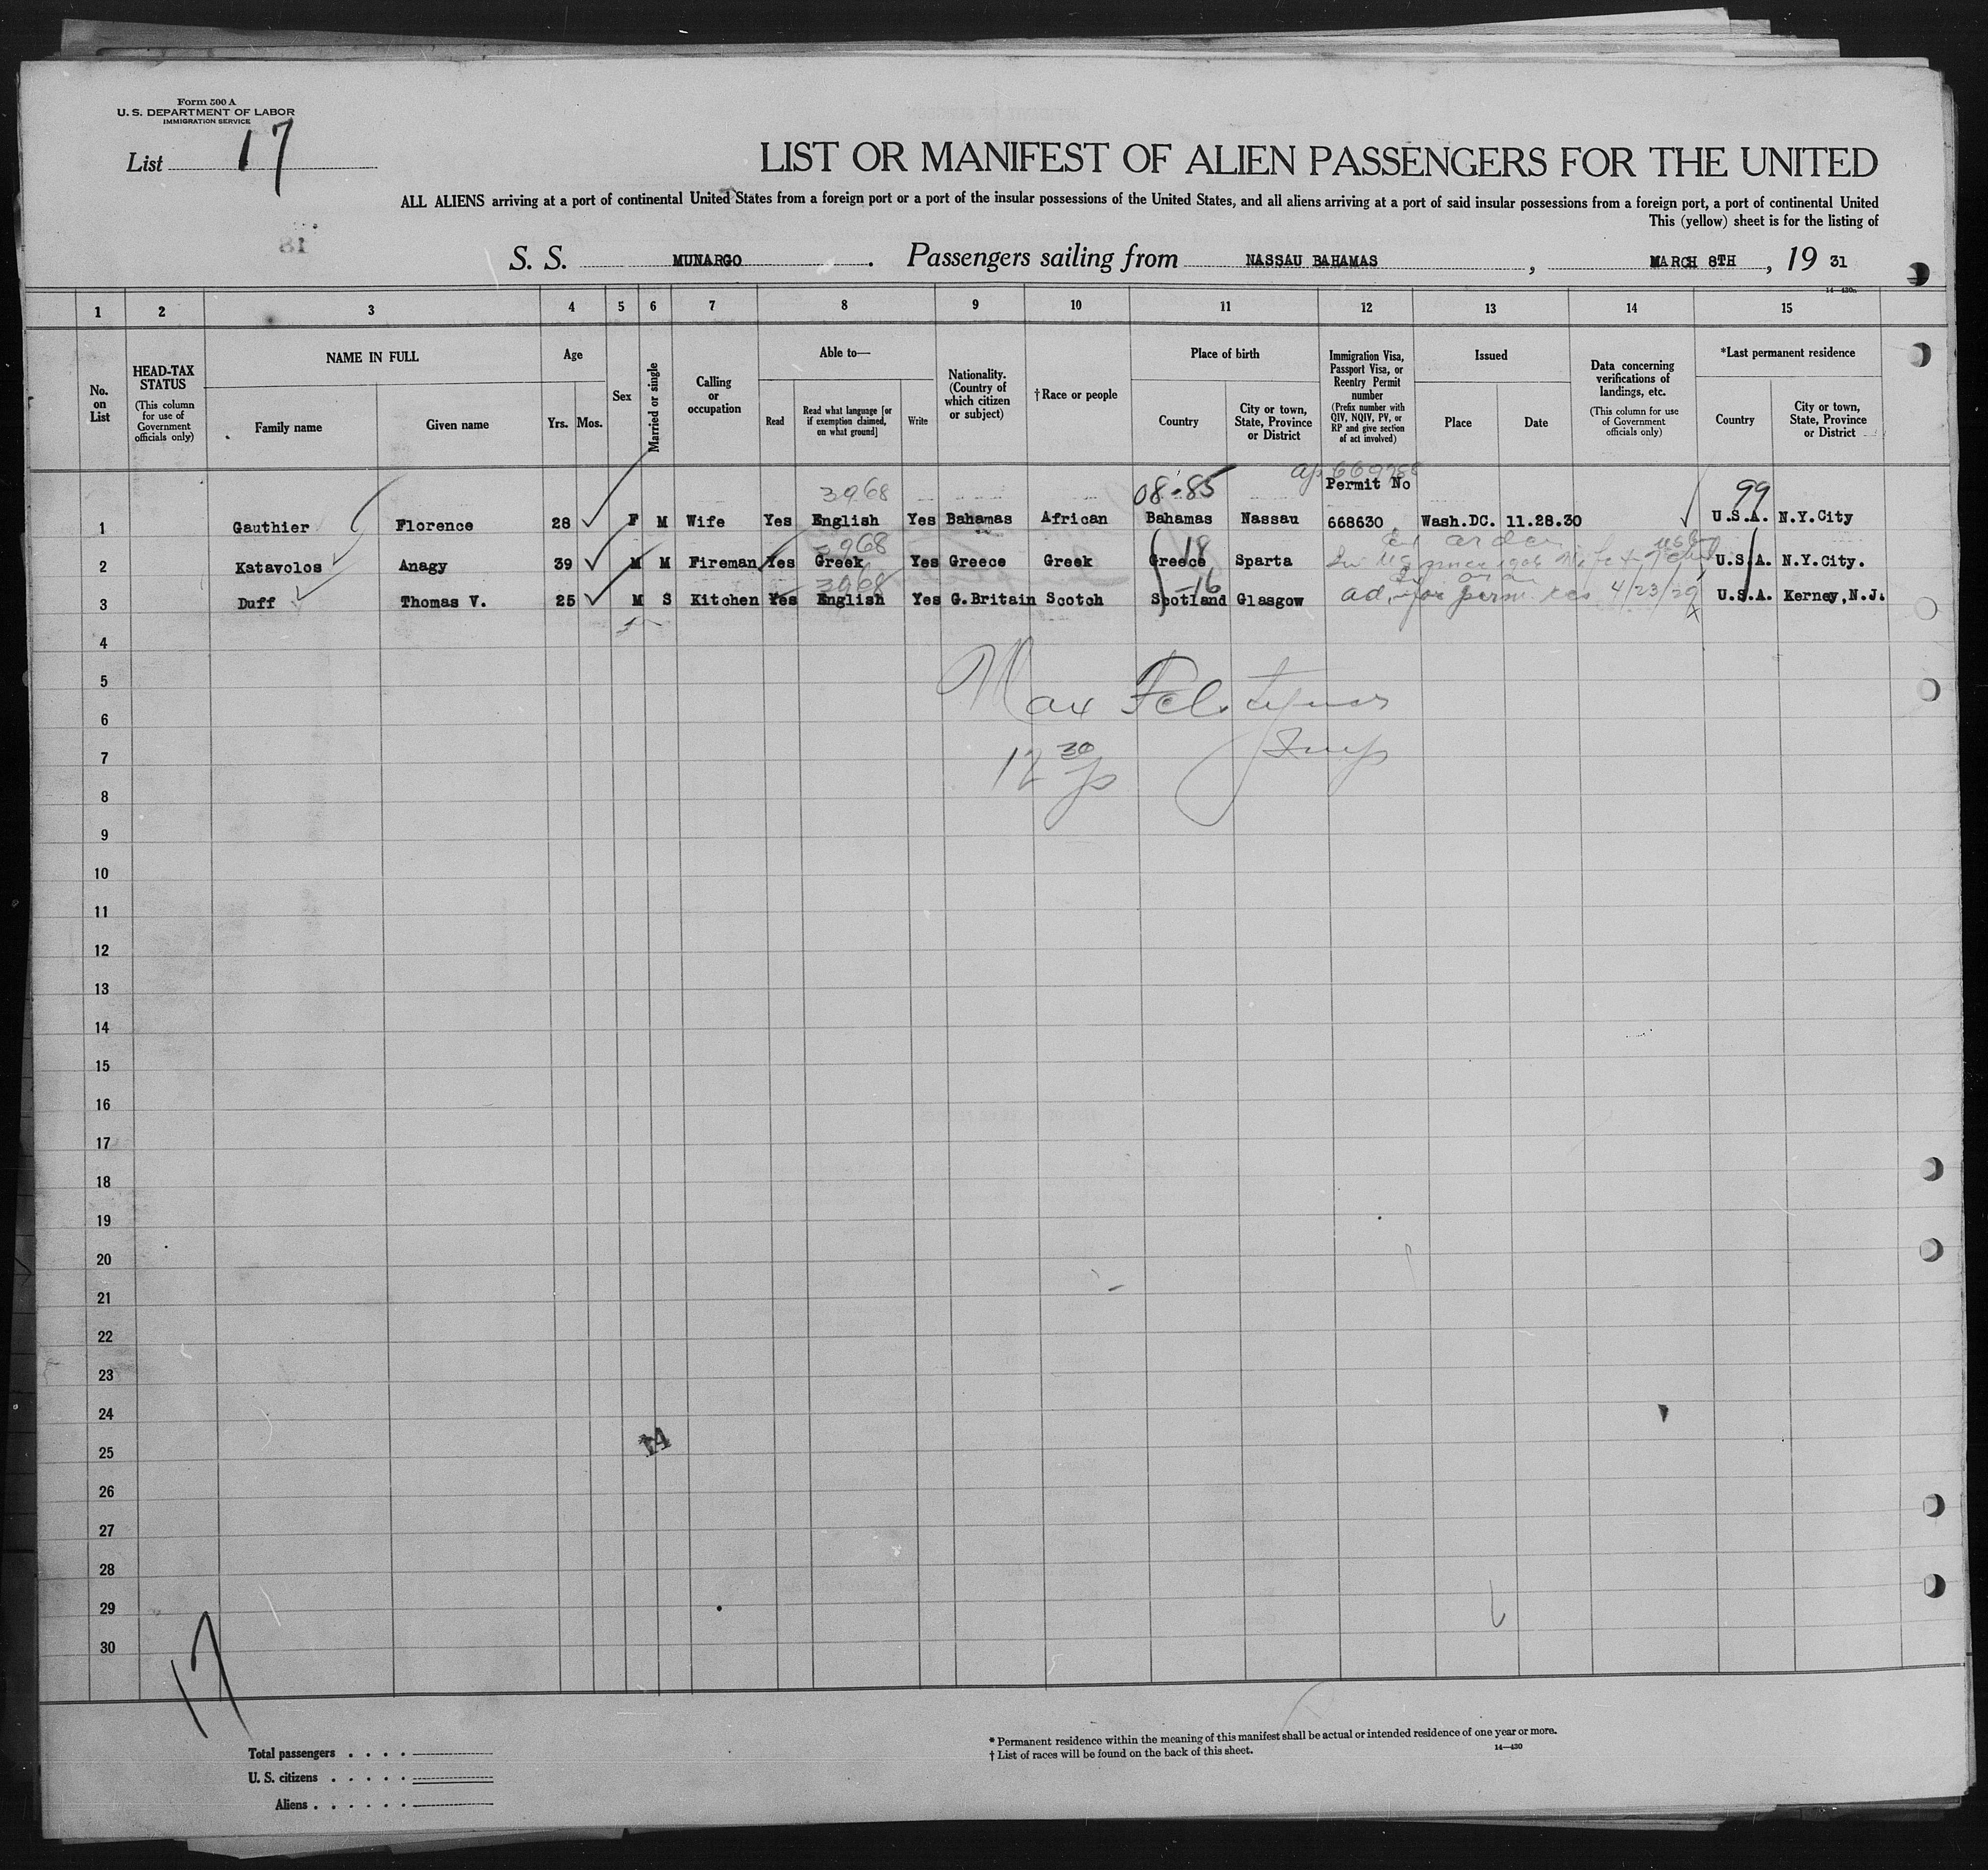 Form 500 A
U. S. DEPARTMENT OF LABOR
IMMIGRATION SERVICE
List 17
LIST OR MANIFEST OF ALIEN PASSENGERS FOR THE UNITED
ALL ALIENS arriving at a port of continental United States from a foreign port or a port of the insular possessions of the United States, and all aliens arriving at a port of said insular possessions from a foreign port, a port of continental United
This (yellow) sheet is for the listing of
81
S. S. MUNARGO. Passengers sailing from NASSAU BAHAMAS, MARCH 8TH, 19 31
14—430a
1 2 3 4 5 6 7 8 9 10 11 12 13 14 15
No. on List
HEAD-TAX STATUS
(This column for use of Government officials only)
NAME IN FULL
Family name
Given name
Age
Yrs. Mos.
Sex
Married or single
Calling or occupation
Able to—
Read
Read what language [or if exemption claimed, on what ground]
Write
Nationality. (Country of which citizen or subject)
†Race or people
Place of birth
Country
City or town, State, Province or District
Immigration Visa, Passport Visa, or Reentry Permit number
(Prefix number with QIV, NQIV, PV, or RP and give section of act involved)
Issued
Place
Date
Data concerning verifications of landings, etc.
(This column for use of Government officials only)
*Last permanent residence
Country
City or town, State, Province or District
3968 08-85 99
Permit No
1 Gauthier Florence 28 F M Wife Yes English Yes Bahamas African Bahamas Nassau 668630 Wash.DC. 11.28.30 U.S.A. N.Y.City
3968 18
2 Katavolos Anagy 39 M M Fireman Yes Greek Yes Greece Greek Greece Sparta U.S.A. N.Y.City.
3968 -16
3 Duff Thomas V. 25 M S Kitchen Yes English Yes G.Britain Scotch Scotland Glasgow ad. for perm res 4/23/29 U.S.A. Kerney,N.J.
4
5 Max
6
7 12 30 p
8
9
10
11
12
13
14
15
16
17
18
19
20
21
22
23
24
25 14
26
27
28
29
30
17
Total passengers . . . .
U. S. citizens . . . . .
Aliens . . . . . .
* Permanent residence within the meaning of this manifest shall be actual or intended residence of one year or more.
† List of races will be found on the back of this sheet.
14—430